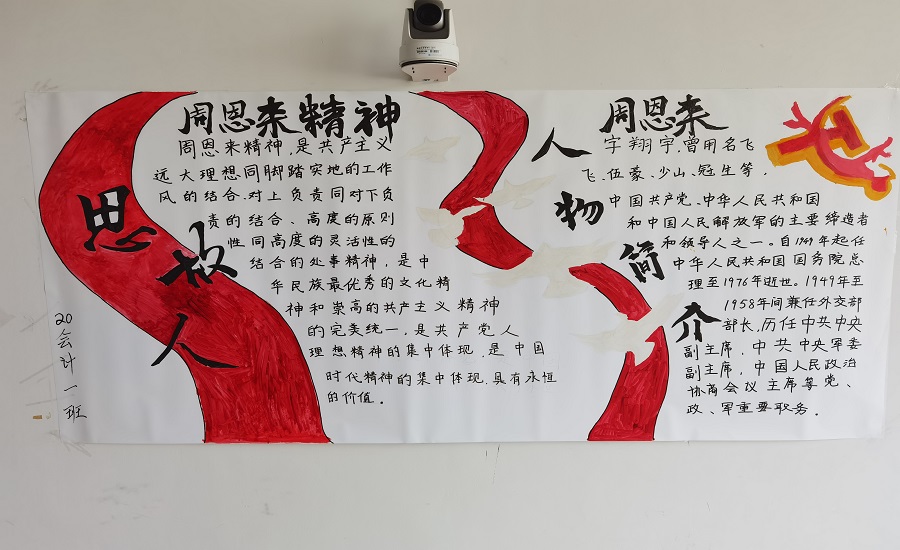 思故人
20会计一班
周恩来精神
周恩来精神,是共产主义
远大理想同脚踏实地的工作
风的结合、对上负责同对下负
责的结合、高度的原则
性同高度的灵活性的
结合的处事精神,是中
华民族最优秀的文化精
神和崇高的共产主义精神
的完美统一,是共产党人
理想精神的集中体现,是中国
时代精神的集中体现,具有永恒
的价值。
人物简介
周恩来
字翔宇,曾用名飞
飞、伍豪、少山、冠生等,
中国共产党、中华人民共和国
和中国人民解放军的主要缔造者
和领导人之一。自1949年起任
中华人民共和国国务院总
理至1976年逝世。1949年至
1958年间兼任外交部
部长,历任中共中央
副主席,中共中央军委
副主席,中国人民政治
协商会议主席等党、
政、军重要职务。